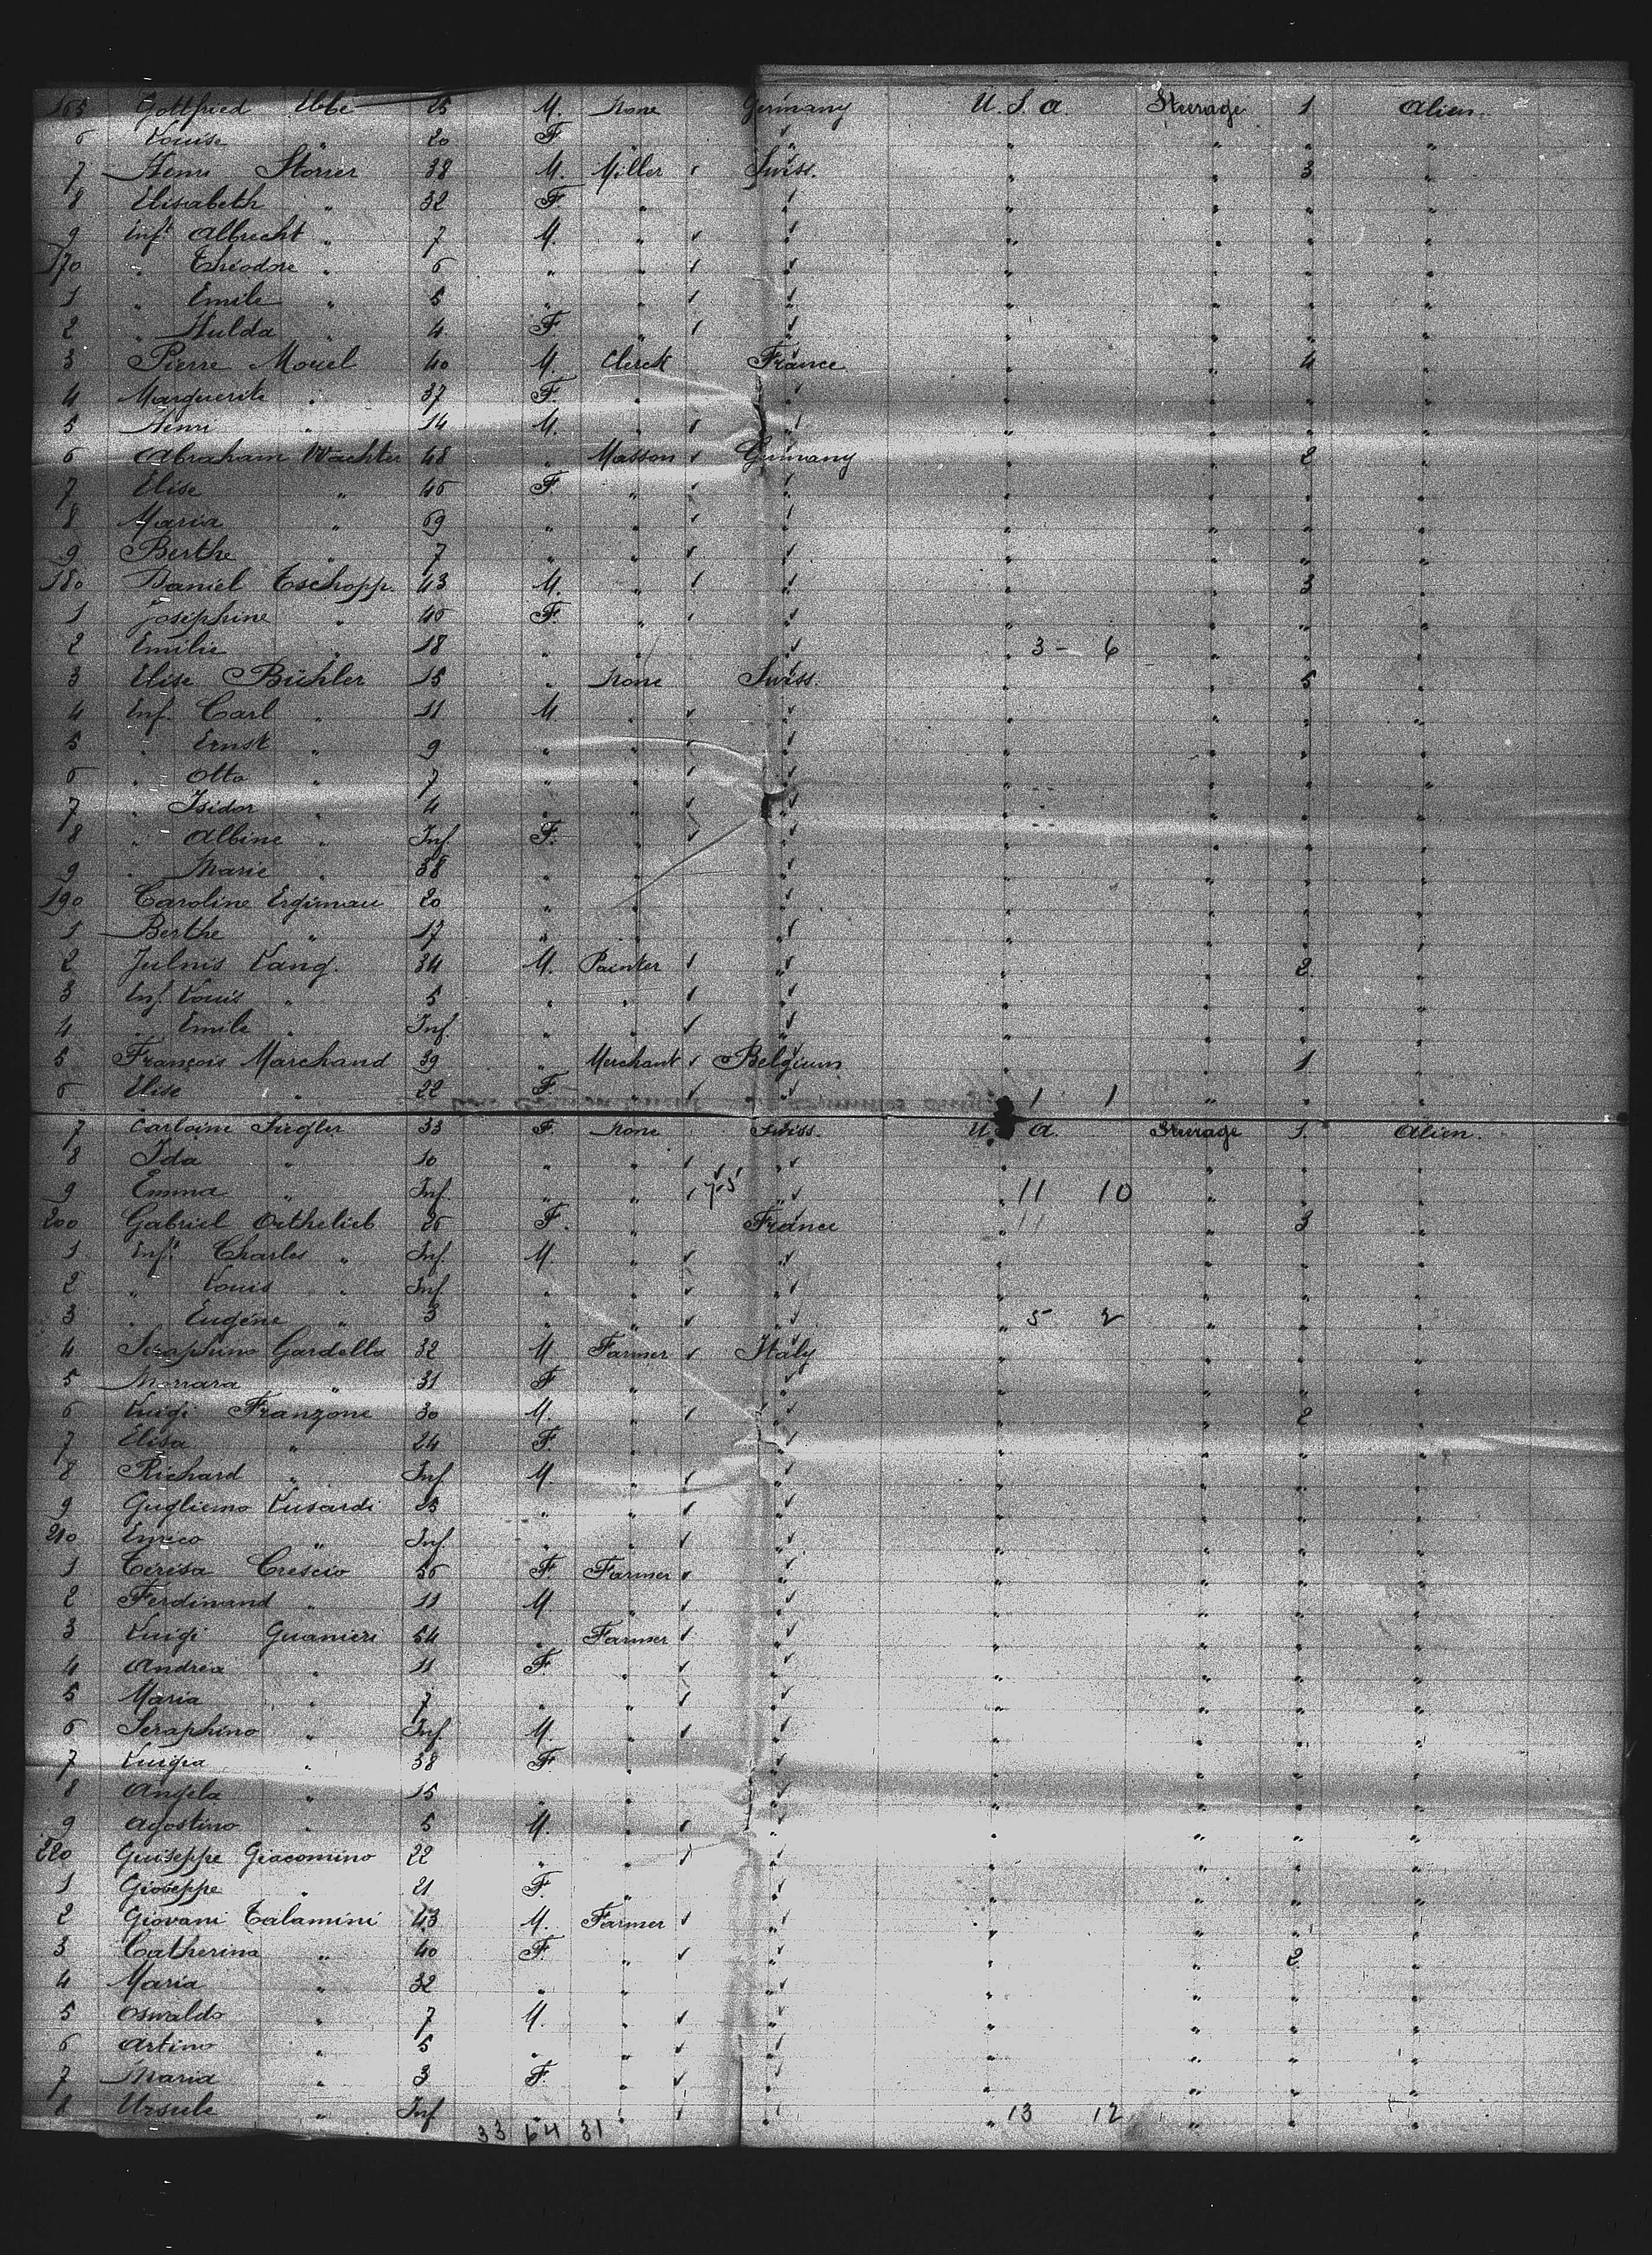 165 Gottfried Ebbe 25 M. None Germany U.S.A. Steerage 1 Alien.
6 Louise " 20 F. " " " " " "
7 Henri Storrer 38 M. Miller Swiss. " " 3 "
8 Elisabeth " 32 F. " " " " " "
9 Inft Albrecht " 7 M. " " " " " "
170 " Théodore " 6 " " " " " " "
1 " Emile " 5 " " " " " " "
2 " Hulda " 4 F. " " " " " "
3 Pierre Mouel 40 M. Clerck France " " 4 "
4 Marguerite " 37 F. " " " " " "
5 Henri " 14 M. " " " " " "
6 Abraham Wachter 48 " Masson Germany " " 2 "
7 Elise " 46 F. " " " " " "
8 Maria " 69 " " " " " " "
9 Berthe " 7 " " " " " " "
180 Daniel Tschopp. 43 M. " " " " 3 "
1 Joséphine " 46 F. " " " " " "
2 Emilie " 18 " " " " 3 - 6 " " "
3 Elise Bühler 15 " None Swiss. " " 5 "
4 Inf. Carl " 11 M " " " " " "
5 " Ernst " 9 " " " " " " "
6 " Otto " 7 " " " " " " "
7 " Isidor " 4 " " " " " " "
8 " Albine " Inf. F. " " " " " "
9 " Marie " 38 " " " " " " "
190 Caroline 20 " " " " " " "
1 Berthe " 17 " " " " " " "
2 Julnis Lang. 34 M. Painter " " " 2 "
3 Inf. Louis " 5 " " " " " " "
4 " Emile " Inf. " " " " " " "
5 François Marchand 39 " Merchant Belgium " " 1 "
6 Elise " 22 F. " " " 1 1 " " "
7 Carloine Siegler 33 F. None Swiss. U.S.A. Steerage 1. Alien.
8 Ida " 10 " " " " " " "
9 Emma " Inf. " " " " 11 10 " " "
200 Gabriel Orthelieb 26 F. France " 11 " 3 "
1 Inft Charles " Inf. M. " " " " " "
2 " Louis " Inf " " " " " " "
3 " Eugéne " 3 " " " " 5 2 " " "
4 Seraphino Gardella 32 M Farmer Italy " " " "
5 Morrara " 31 F " " " " " "
6 Luigi Franzone 30 M. " " " " 2 "
7 Elisa " 24 F. " " " " " "
8 Richard " Inf M. " " " " " "
9 Gugliemo Lusardi 25 " " " " " " "
210 Enrico " Inf. " " " " " " "
1 Terésa Crescio 56 F. Farmer " " " " "
2 Ferdinand " 11 M. " " " " " "
3 Luigi Guanieri 54 " Farmer " " " " "
4 Andréa " 11 F. " " " " " "
5 Maria " 7 " " " " " " "
6 Seraphino " Inf. M. " " " " " "
7 Luigia " 38 F " " " " " "
8 Angéla " 15 " " " " " " "
9 Agostino " 5 M. " " " " " "
220 Guiseppe Giacomino 22 " " " " " " "
1 Gioseppe " 21 F. " " " " " "
2 Giovani Talamini 43 M. Farmer " " " " "
3 Catherina " 40 F. " " " " 2 "
4 Maria " 32 " " " " " " "
5 Oswaldo " 7 M. " " " " " "
6 Artino " 5 " " " " " " "
7 Maria " 3 F. " " " " " "
8 Ursule " Inf " " " " 13 12 " " "
33 64 31